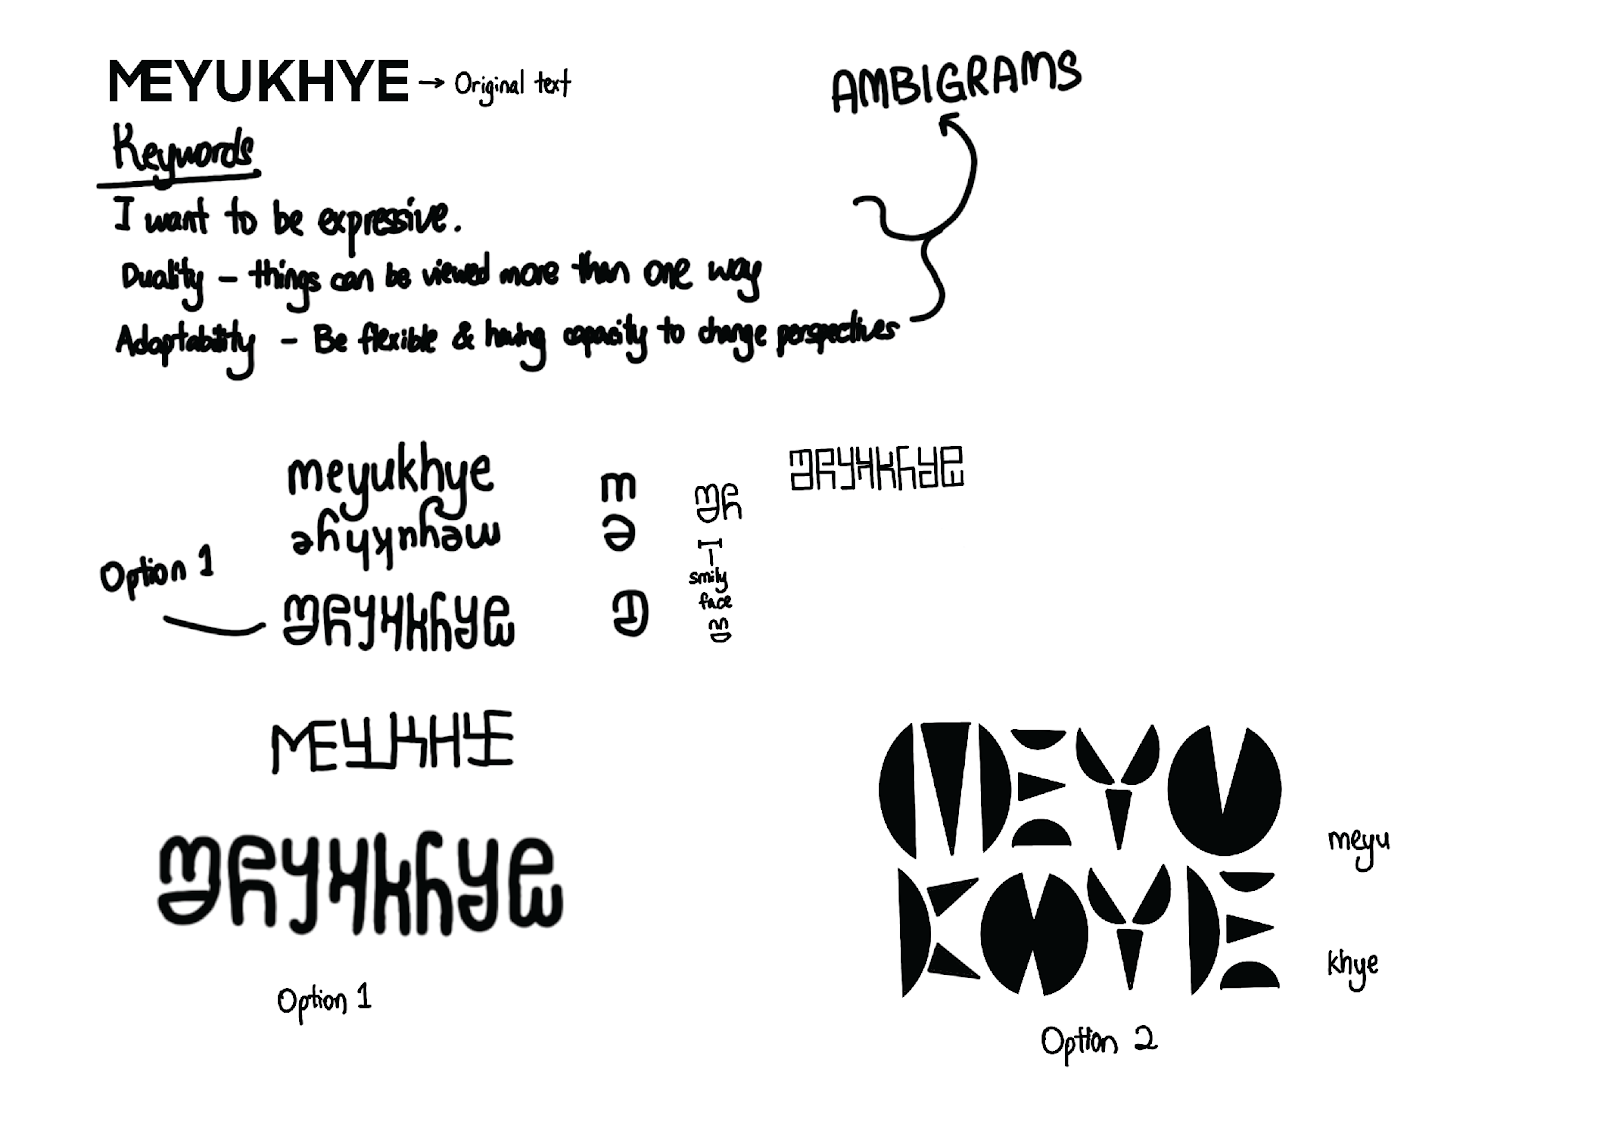 MEYUKHYE → Original text
AMBIGRAMS
Keywords
I want to be expressive.
Duality – things can be viewed more than one way
Adaptability – Be flexible & having capacity to change perspectives
meyukhye
meyukhye
Option 1
meyukhye
m
ə
me
smily
face
meyukhye
MEYUKHYE
meyukhye
Option 1
MEYU
KHYE
meyu
khye
Option 2